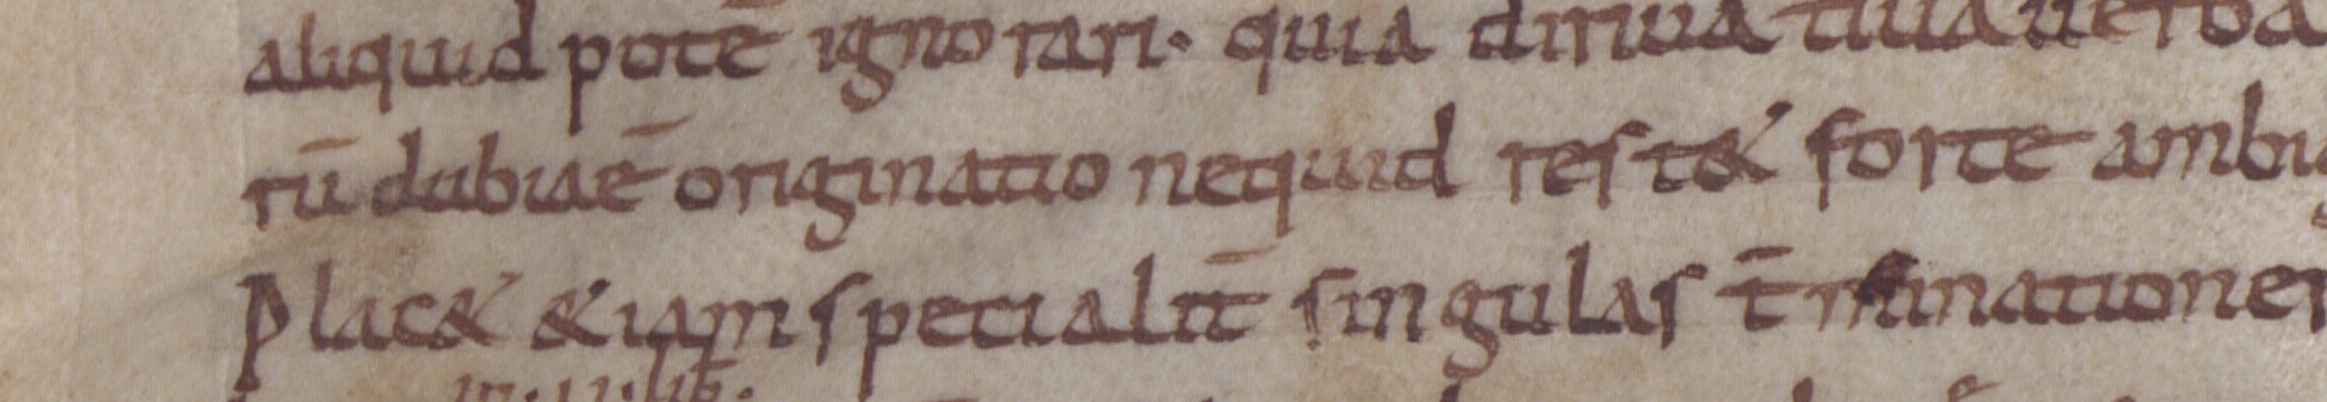 aliquid potē ignorari· quia diriuatiua uerba
rū dubiaē originatio nequid rest& forte ambi
Plac& &iam specialit̄ singulas t̄minationes